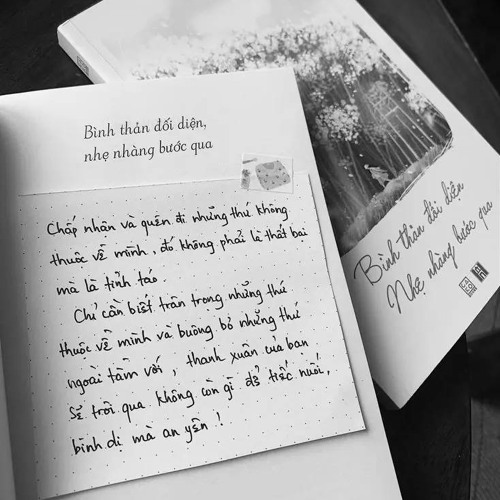 Bình thản đối diện,
nhẹ nhàng bước qua
Chấp nhân và quên đi những thứ không
thuộc về mình, đó không phải là thất bại
mà là tỉnh táo.
Chỉ cần biết trân trọng những thứ
thuộc về mình và buông bỏ những thứ
ngoài tầm với, thanh xuân của bạn
sẽ trôi qua không còn gì để tiếc nuối,
bình dị mà an yên!
Bình thản đối diện
Nhẹ nhàng bước qua